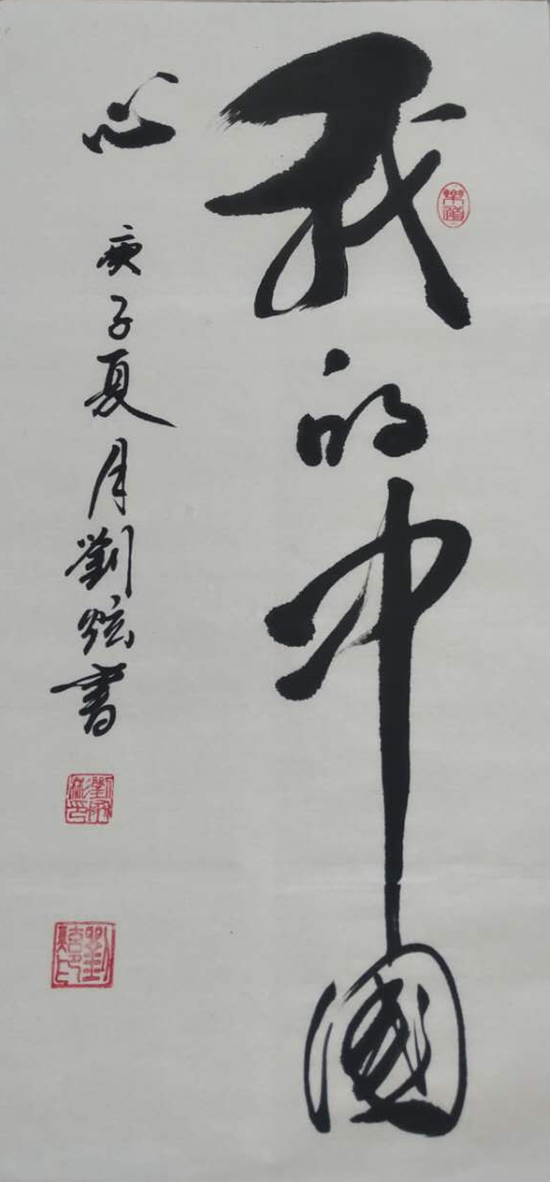 我的中国
心
庚子夏月劉炫書